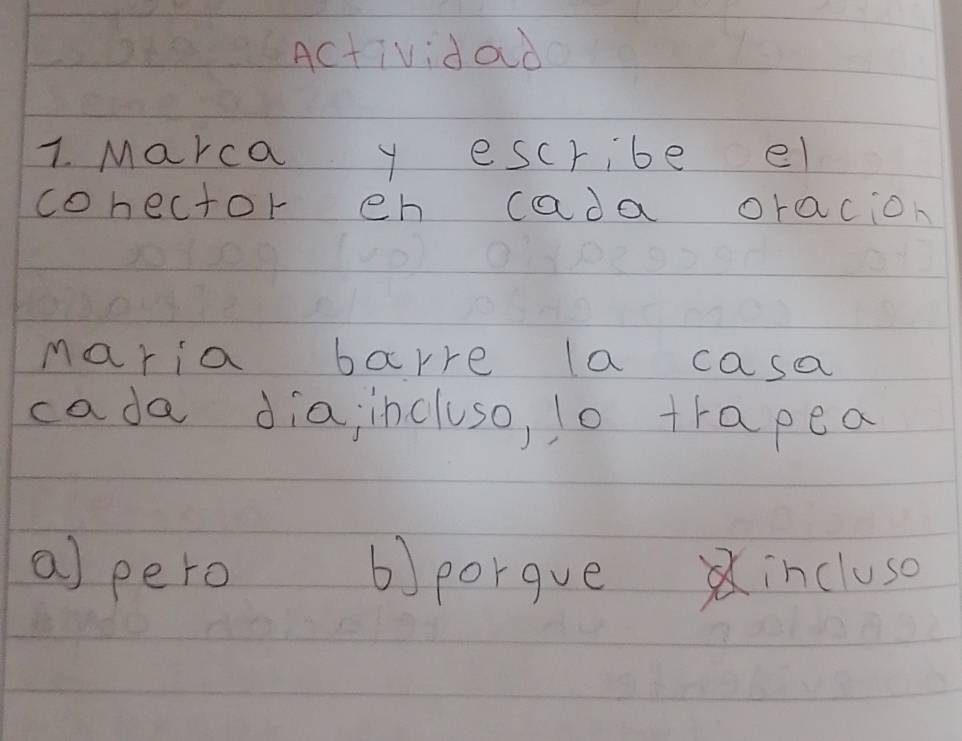 Actividad
1. Marca y escribe el
conector en cada oracion
Maria barre la casa
cada dia; incluso, lo trapea
a) pero b) porque incluso